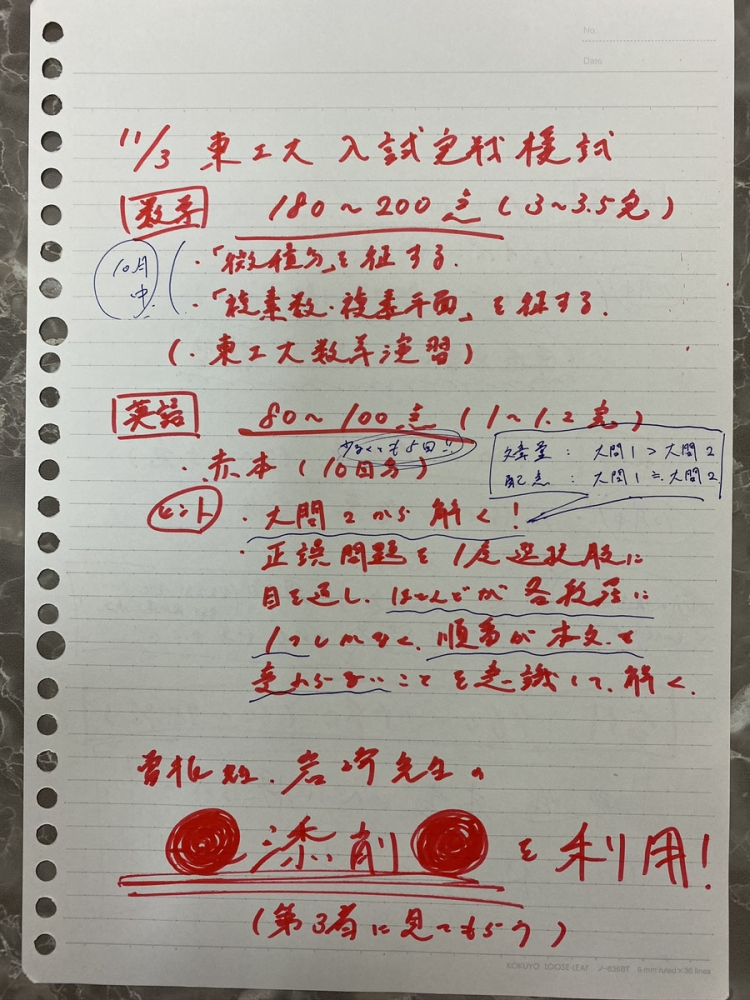 No.
Date
11/3 東工大 入試実戦模試
数学 180～200点 (3～3.5完)
10月中 ・「微積分」を征する.
・「複素数・複素平面」を征する.
(・東工大数学演習)
英語 80～100点 (1～1.2完)
少なくても5回
・赤本 (10回分)
文章量 : 大問1 > 大問2
配点 : 大問1 ≒ 大問2
ヒント ・大問2から解く!
・正誤問題を1度選択肢に
目を通し、ほとんどが各段落に
1つしかなく、順番が本文と
変わらないことを意識して、解く.
岩崎先生の
添削 を利用!
(第3者に見てもらう)
KOKUYO LOOSE-LEAF ノ-836BT 6 mm ruled×36 lines